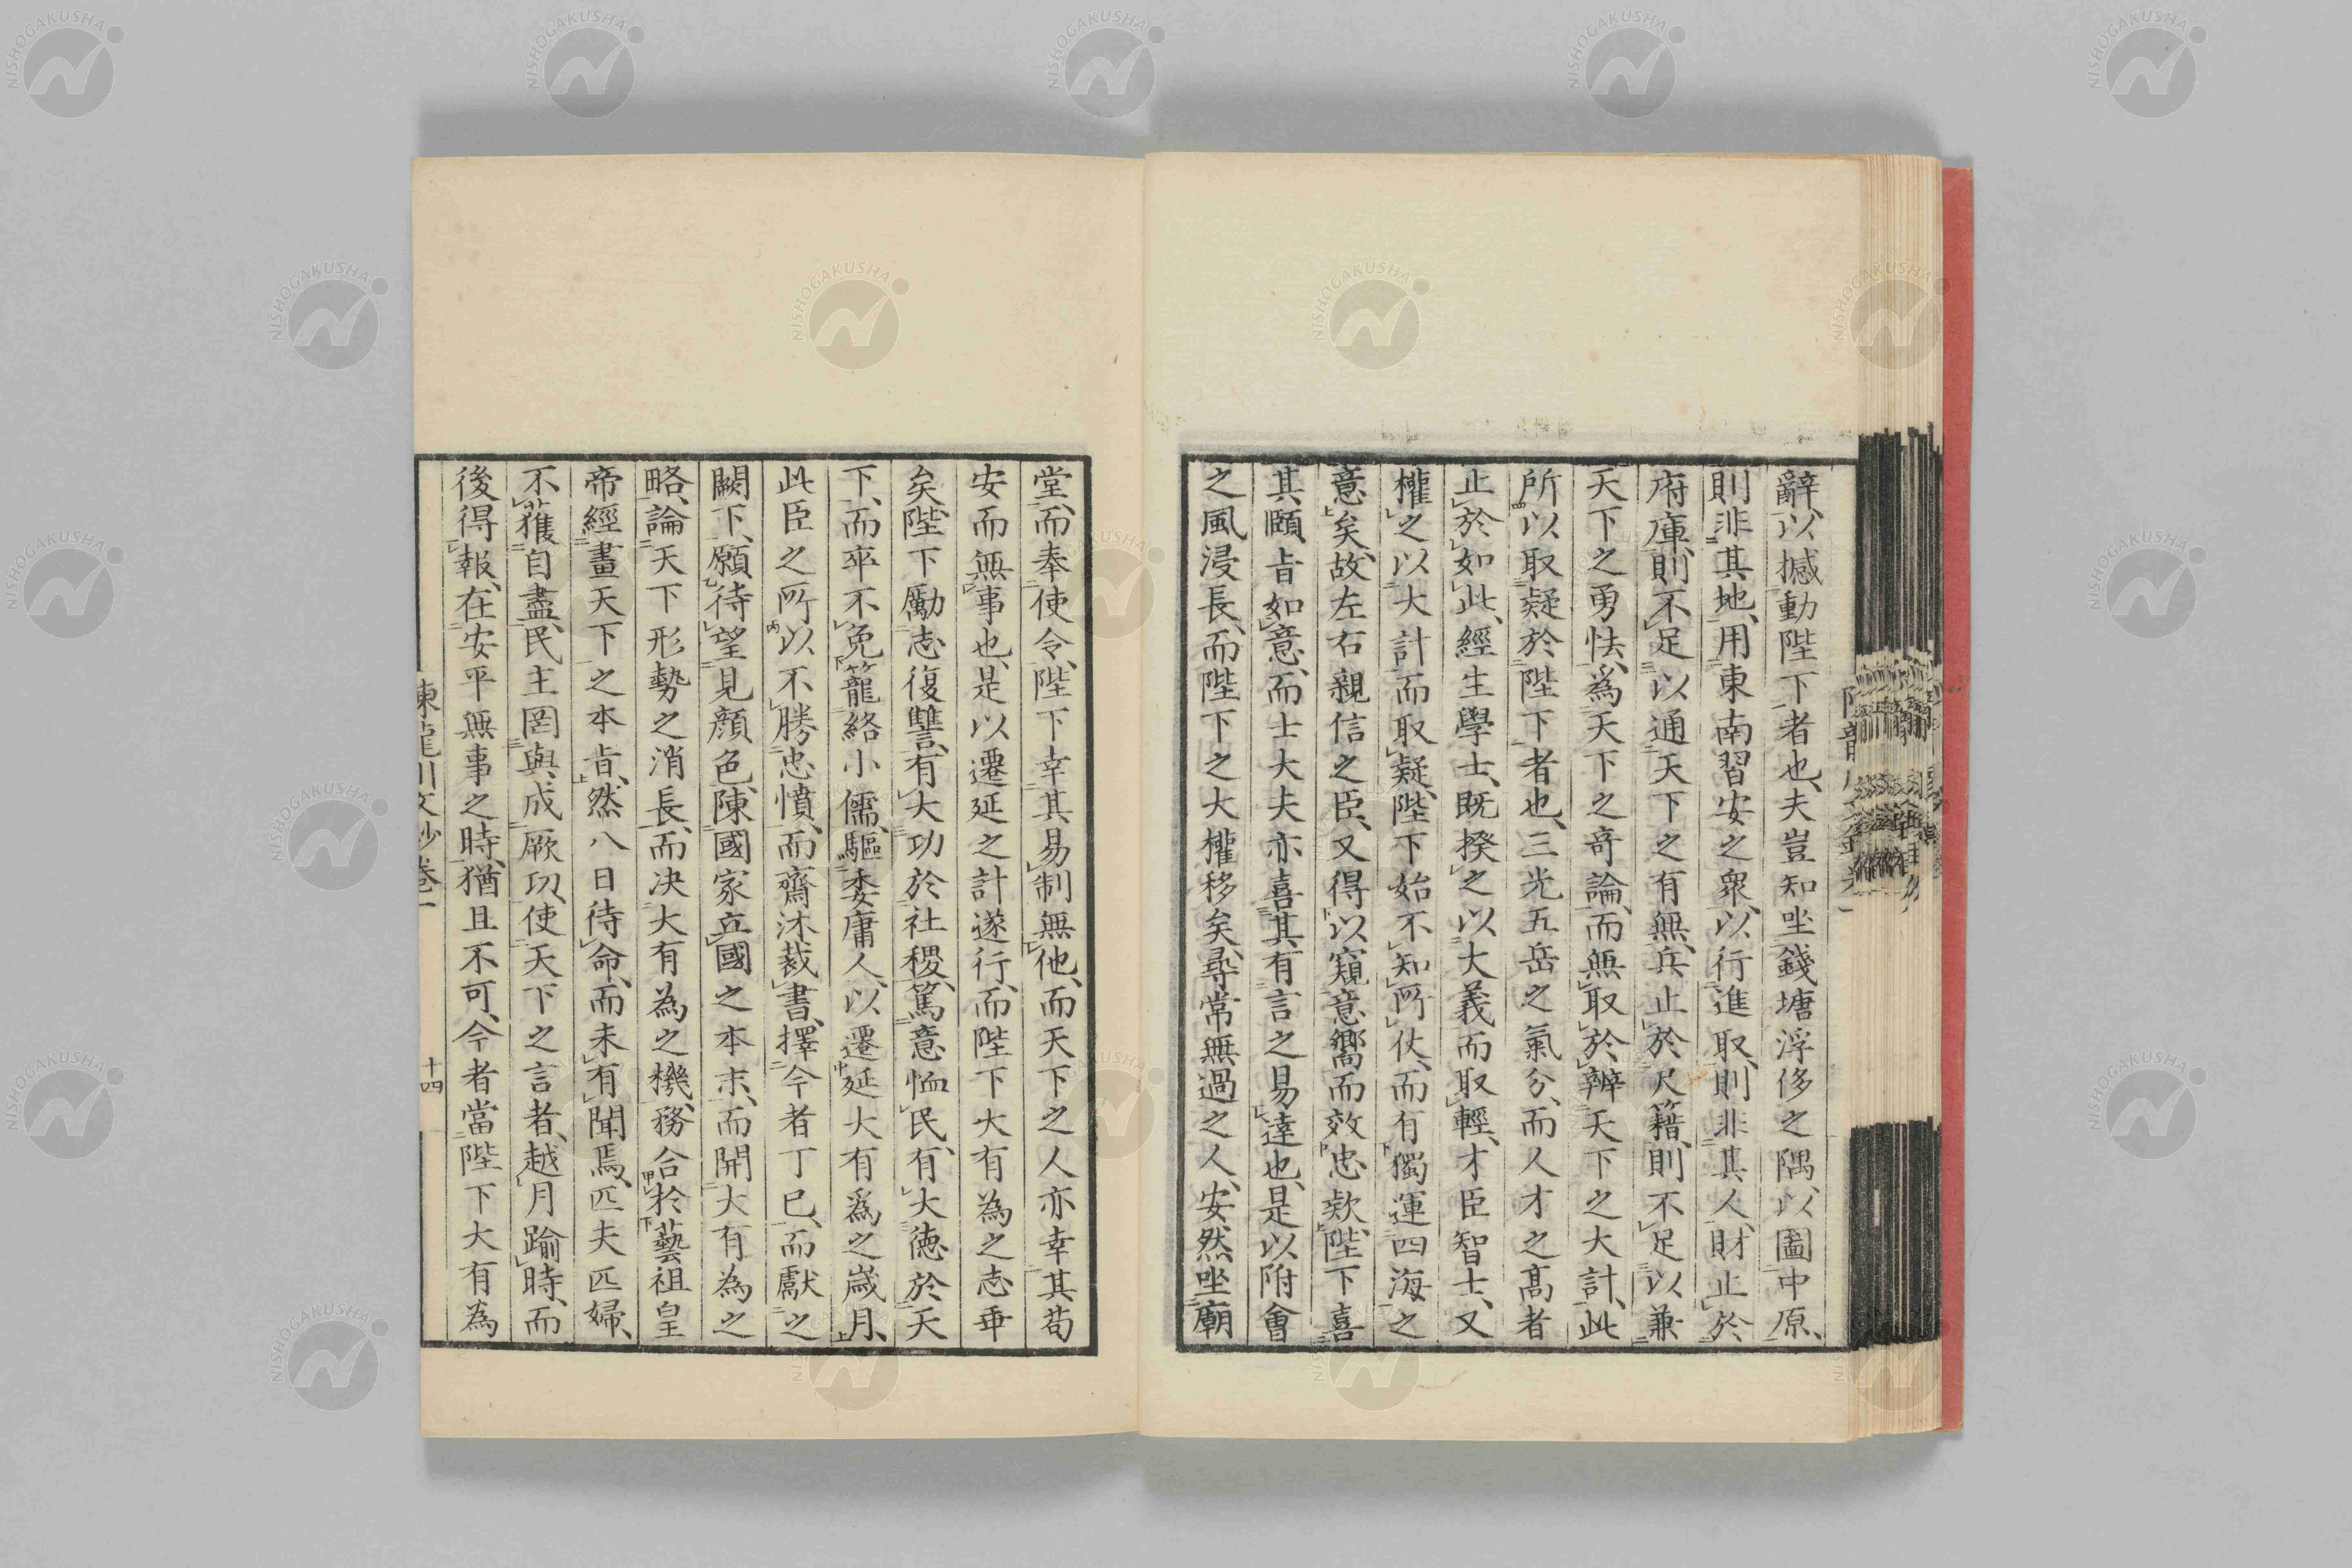 辭、以撼動陛下者也、夫豈知坐錢塘浮侈之隅、以圖中原、
則非其地、用東南習安之衆、以行進取、則非其人、財止於
府庫、則不足以通天下之有無、兵止於尺籍、則不足以兼
天下之勇怯、爲天下之奇論、而無取於辨天下之大計、此
所以取疑於陛下者也、三光五岳之氣分、而人才之高者
止於如此、經生學士、既揆之以大義而取輕、才臣智士、又
權之以大計而取疑、陛下始不知所仗、而有獨運四海之
意矣、故左右親信之臣、又得以窺意嚮而效忠款、陛下喜
其頤旨如意、而士大夫亦喜其有言之易達也、是以附會
之風浸長、而陛下之大權移矣、尋常無過之人、安然坐廟
堂、而奉使令、陛下幸其易制無他、而天下之人亦幸其苟
安而無事也、是以遷延之計遂行、而陛下大有為之志乖
矣、陛下勵志復讐、有大功於社稷、篤意恤民、有大德於天
下、而卒不免籠絡小儒、驅委庸人、以遷延大有爲之歲月、
此臣之所以不勝忠憤、而齋沐裁書、擇今者丁巳、而獻之
闕下、願待望見顏色、陳國家立國之本末、而開大有為之
略、論天下形勢之消長、而决大有為之機、務合於藝祖皇
帝經畫天下之本旨、然八日待命、而未有聞焉、匹夫匹婦、
不獲自盡、民主罔與成厥功、使天下之言者、越月踰時、而
後得報、在安平無事之時、猶且不可、今者當陛下大有為
陳龍川文鈔卷一
十四
NISHOGAKUSHA